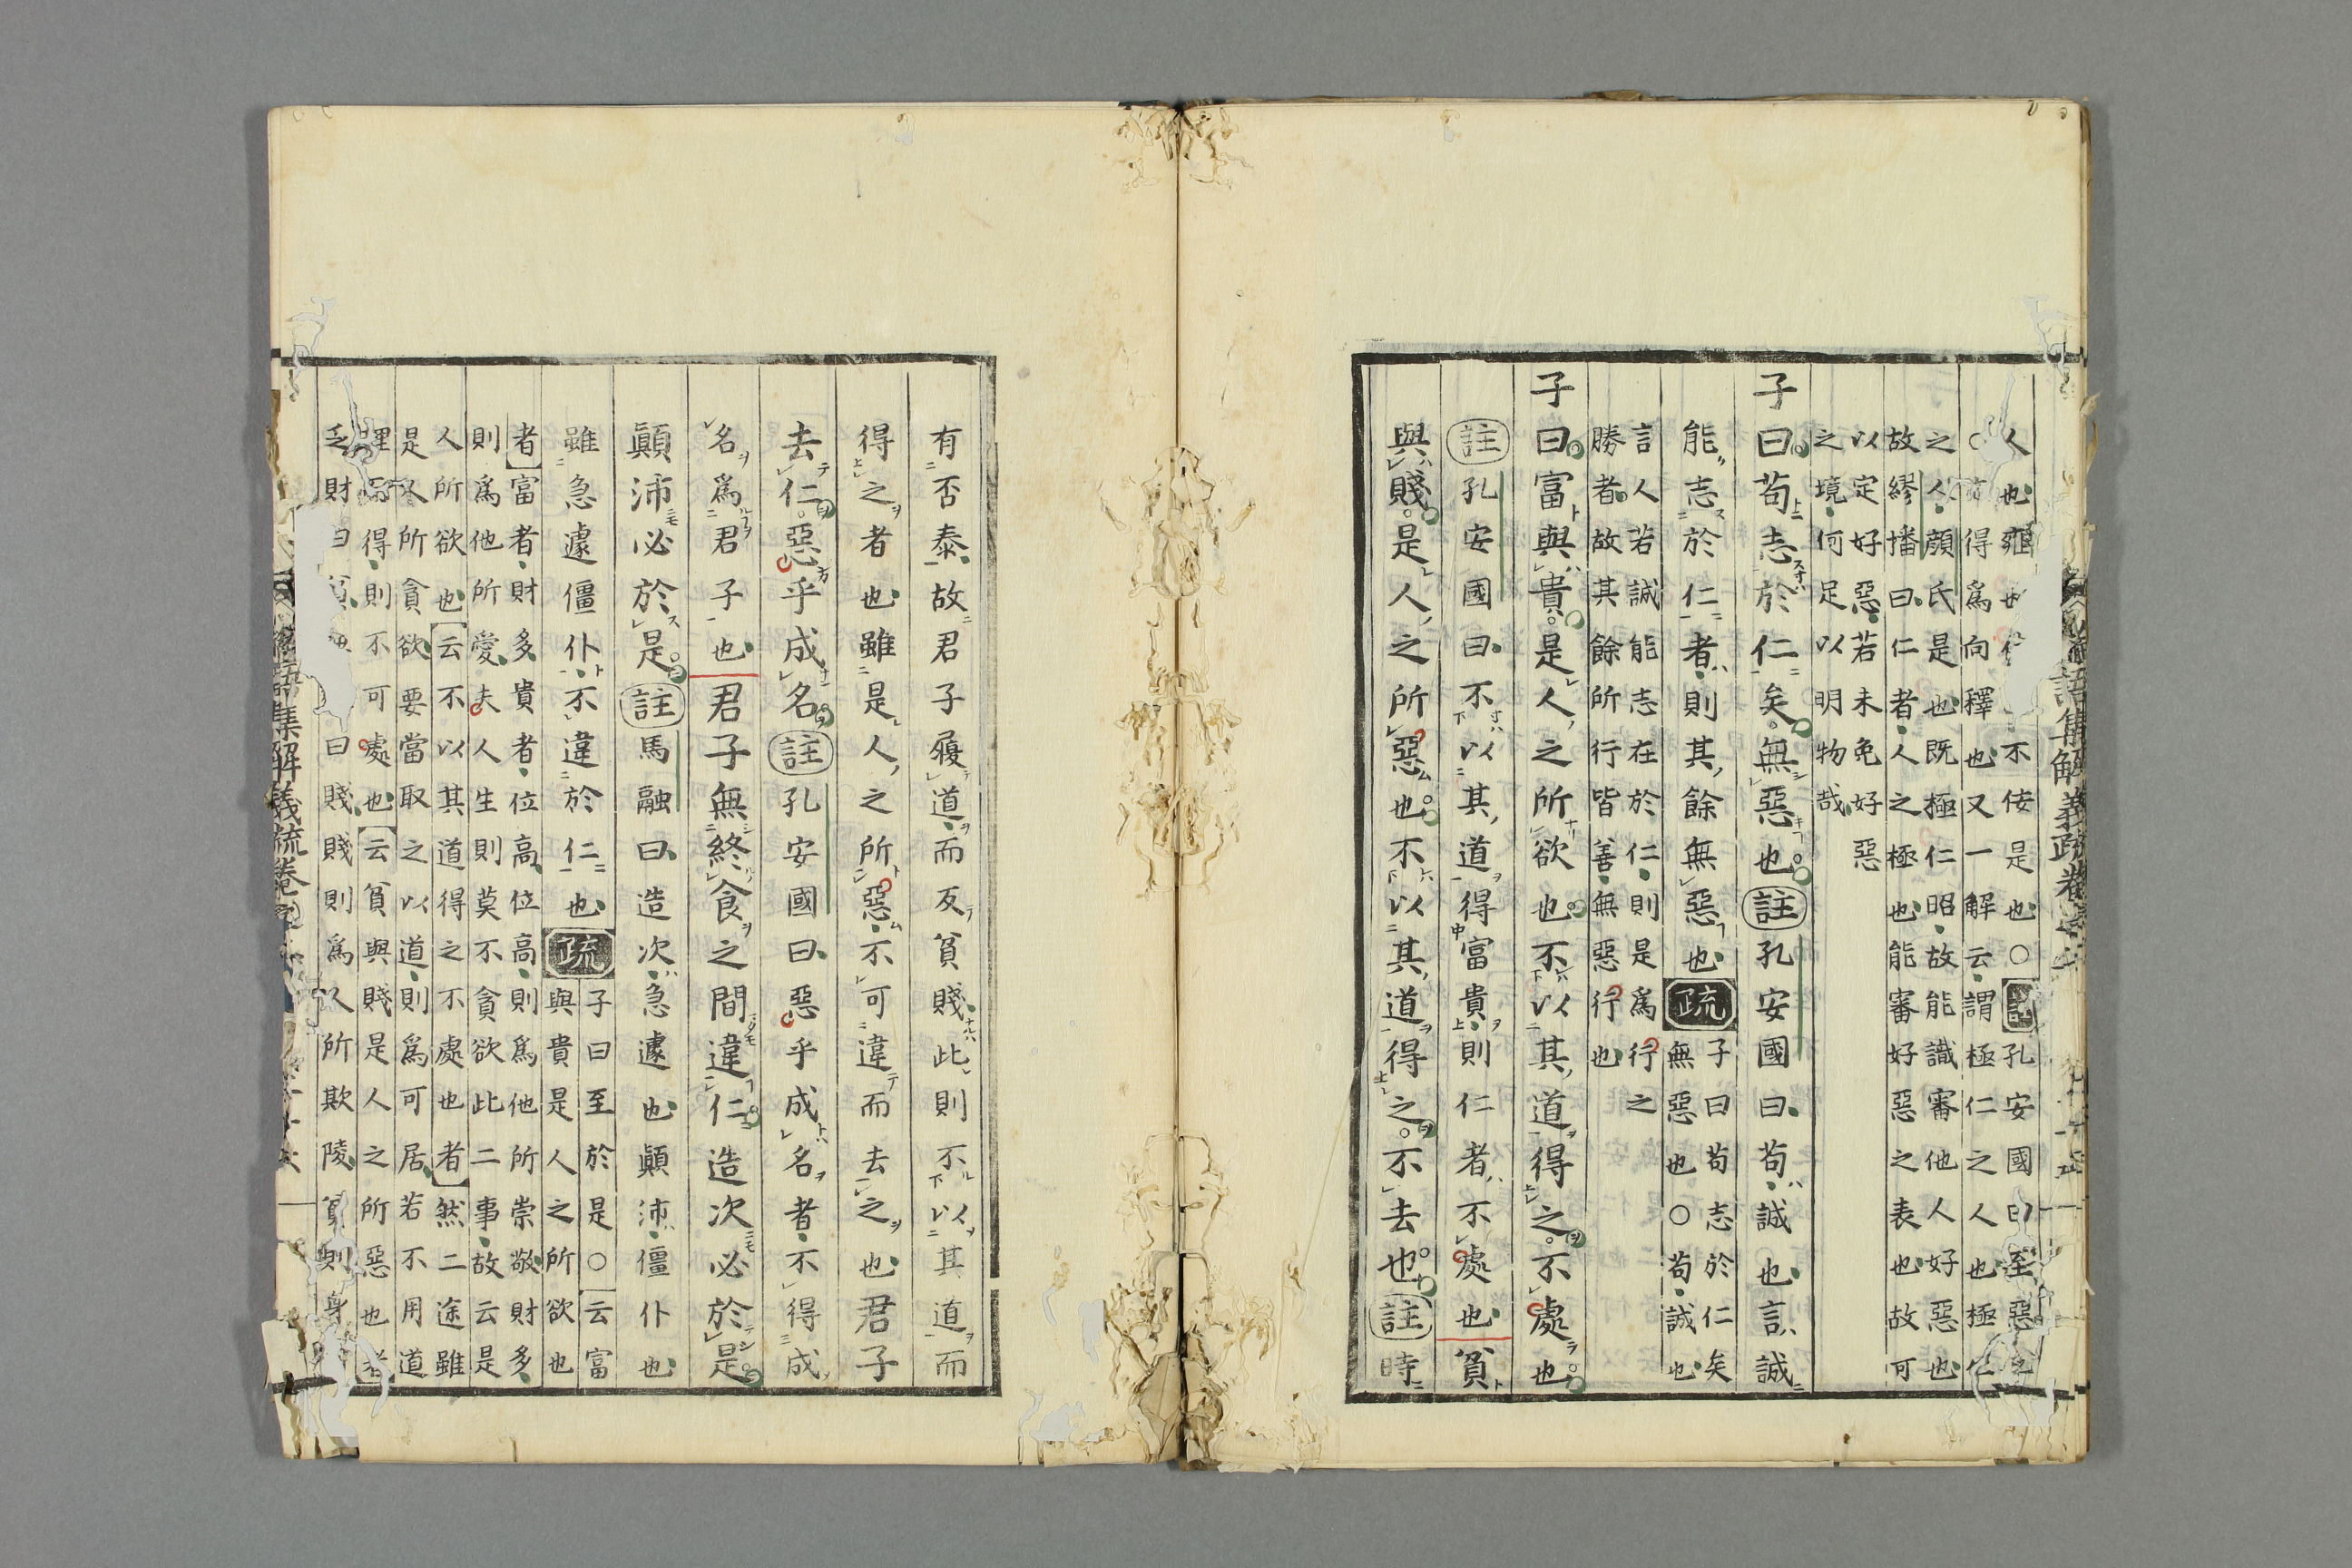 人也雍也仁不佞是也○註孔安國曰至惡之
得爲向釋也又一解云謂極仁之人也極仁
之人顔氏是也既極仁昭故能識審他人好惡也
故繆播曰仁者人之極也能審好惡之表也故可
以定好惡若未免好惡
之境何足以明物哉
子曰苟志於仁矣無惡也註孔安國曰苟誠也言誠
能志於仁者則其餘無惡也疏子曰苟志於仁矣
無惡也○苟誠也
言人若誠能志在於仁則是爲行之
勝者故其餘所行皆善無惡行也
子曰富與貴是人之所欲也不以其道得之不處也
註孔安國曰不以其道得富貴則仁者不處也貧
與賤是人之所惡也不以其道得之不去也註時
有否泰故君子履道而反貧賤此則不以其道而
得之者也雖是人之所惡不可違而去之也君子
去仁惡乎成名註孔安國曰惡乎成名者不得成
名爲君子也君子無終食之間違仁造次必於是
顚沛必於是註馬融曰造次急遽也顚沛僵仆也
雖急遽僵仆不違於仁也疏子曰至於是○云富
與貴是人之所欲也
者富者財多貴者位高位高則爲他所崇敬財多
則爲他所愛夫人生則莫不貪欲此二事故云是
人所欲也云不以其道得之不處也者然二途雖
是人所貪欲要當取之以道則爲可居若不用道
理而得則不可處也云貧與賤是人之所惡也者
乏財曰貧 曰賤賤則爲人所欺陵貧則身